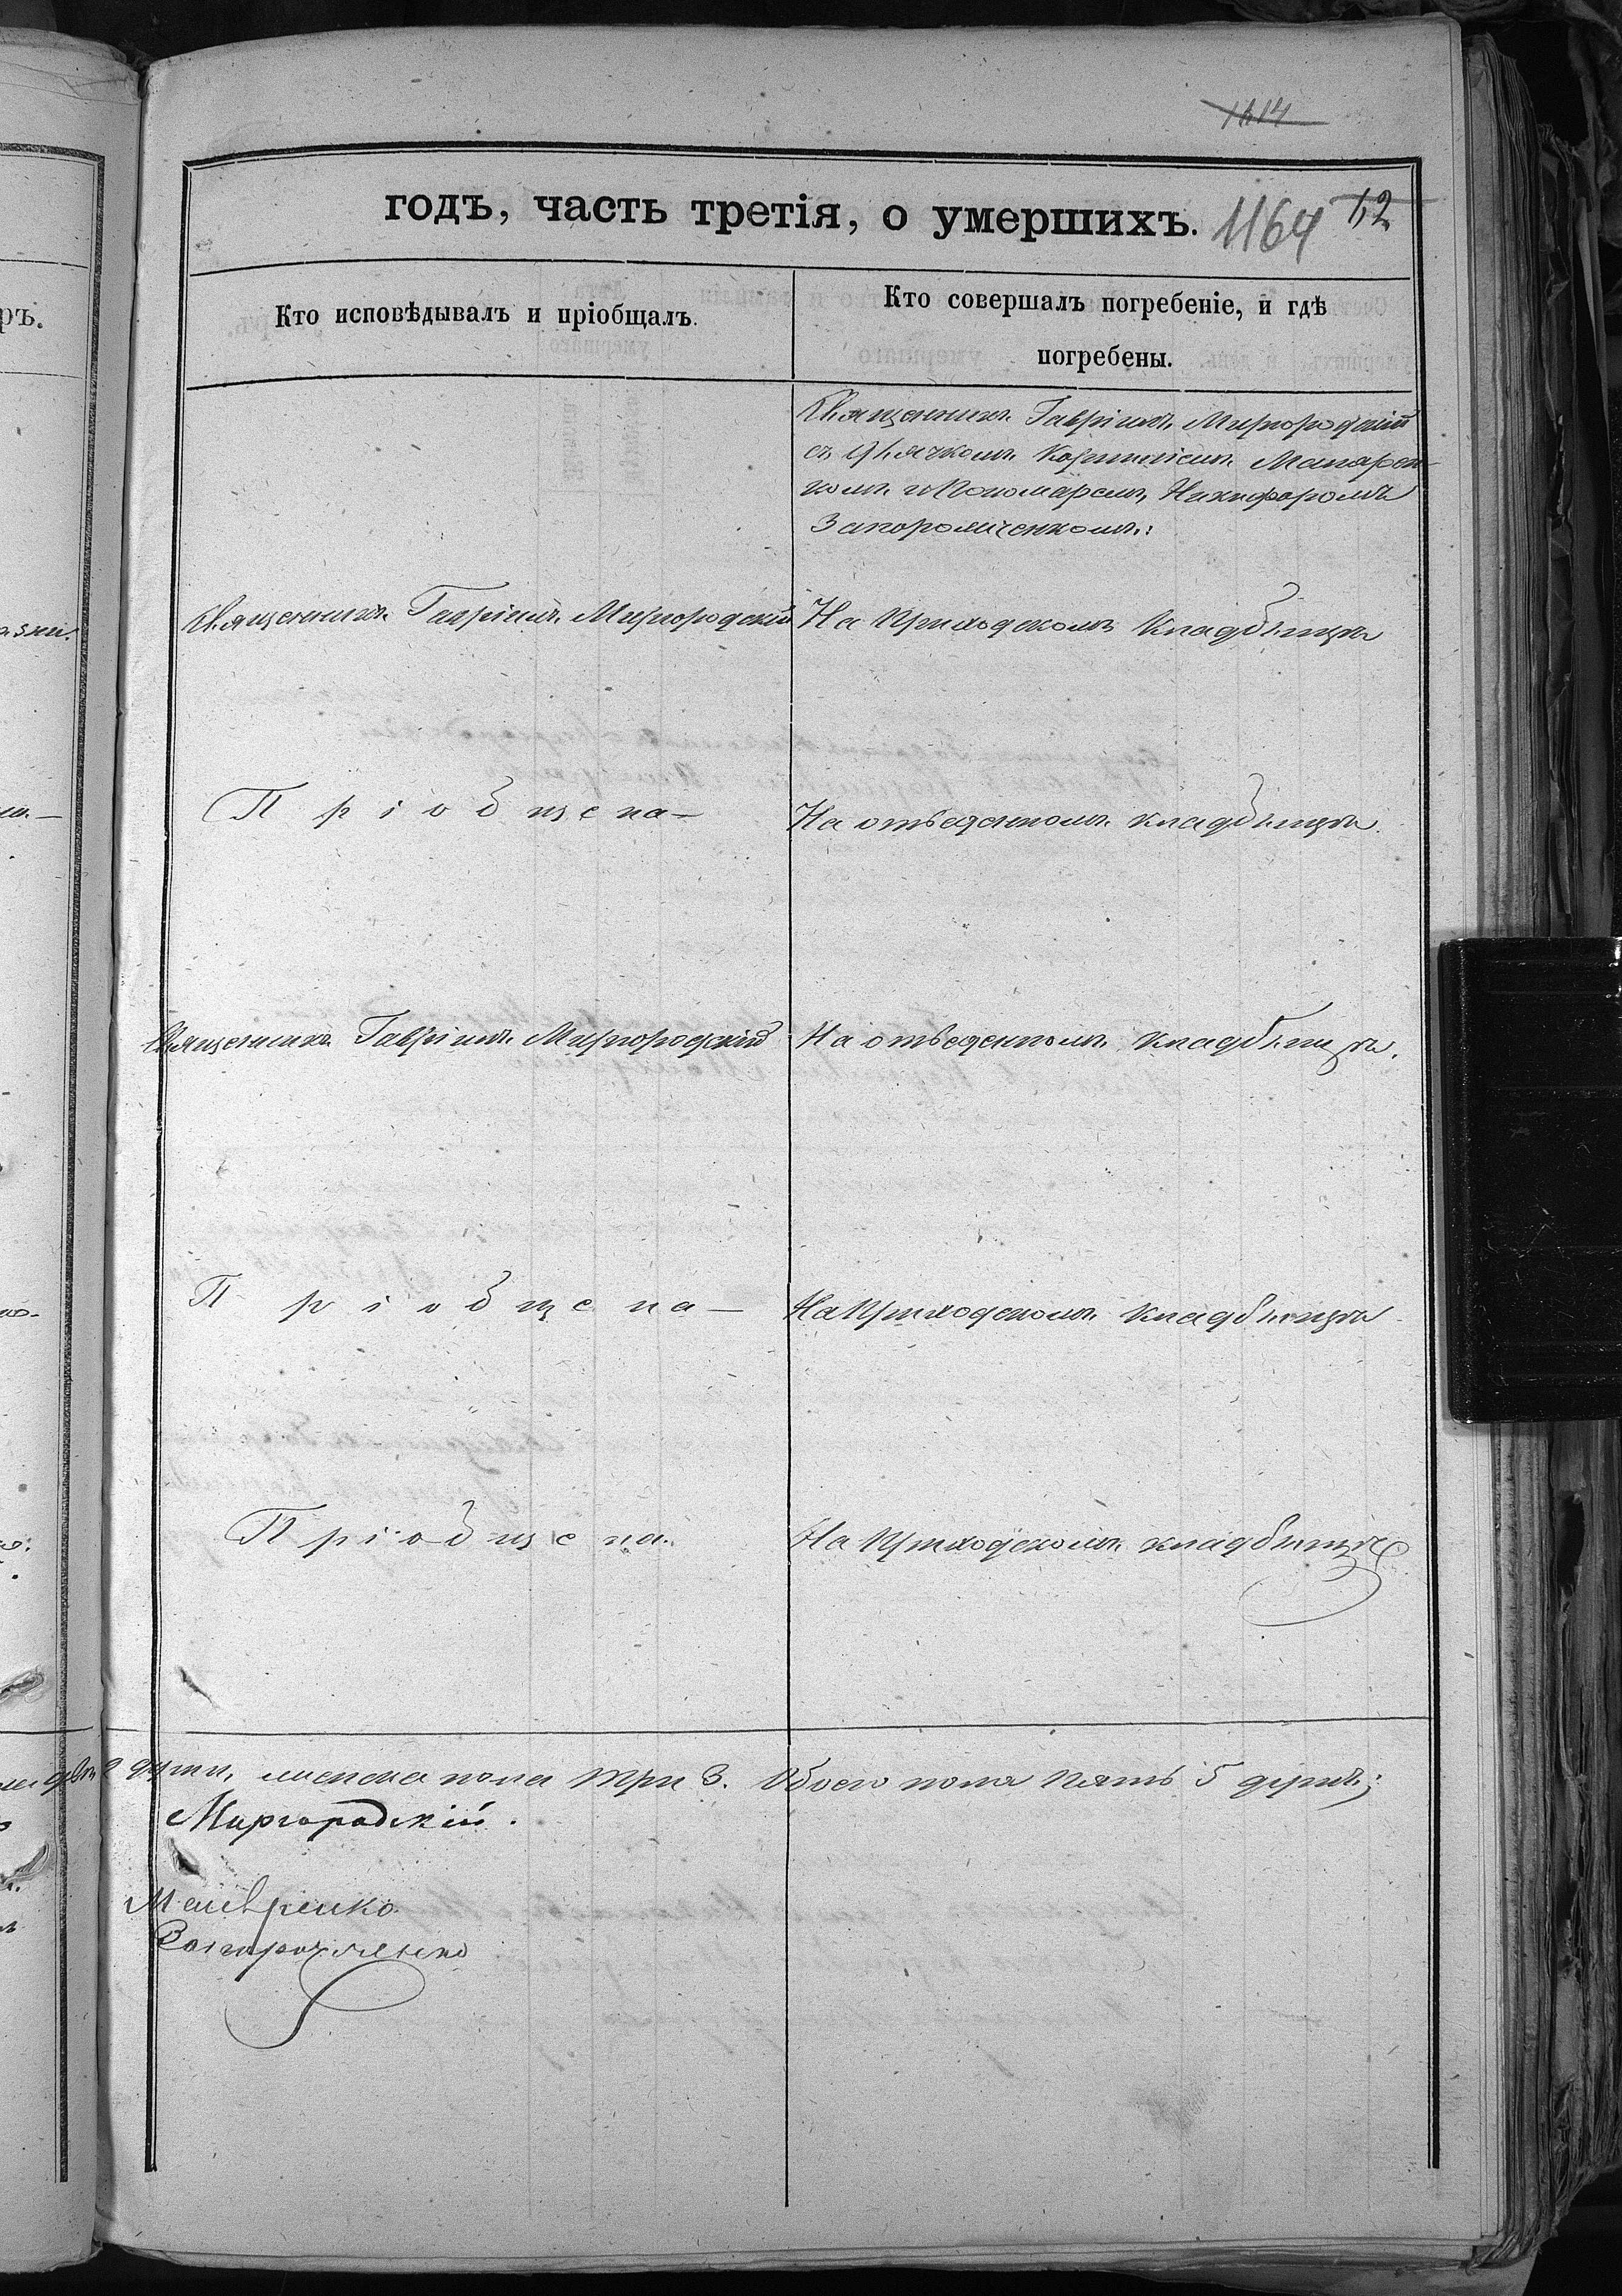 1614
годъ, часть третія, о умершихъ. 1164 12
Кто исповѣдывалъ и пріобщалъ.
Кто совершалъ погребеніе, и гдѣ
погребены.
Священникъ Гавріилъ Миргородскій
съ Дьячкомъ Корниліемъ Макарен-
комъ и Пономаремъ Никифоромъ
Запорожченкомъ:
Священникъ Гавріилъ Миргородскій
На Приходскомъ кладбищѣ
Пріобщена—
На отведенномъ кладбищѣ.
Священникъ Гавріилъ Миргородскій
На отведенномъ кладбищѣ.
Пріобщена—
На Приходскомъ кладбищѣ
Пріобщена.
На Приходскомъ кладбищѣ
души, женска пола три 3. Обоего пола пять 5 душъ;
Миргородскій.
Запорожченко
ръ.